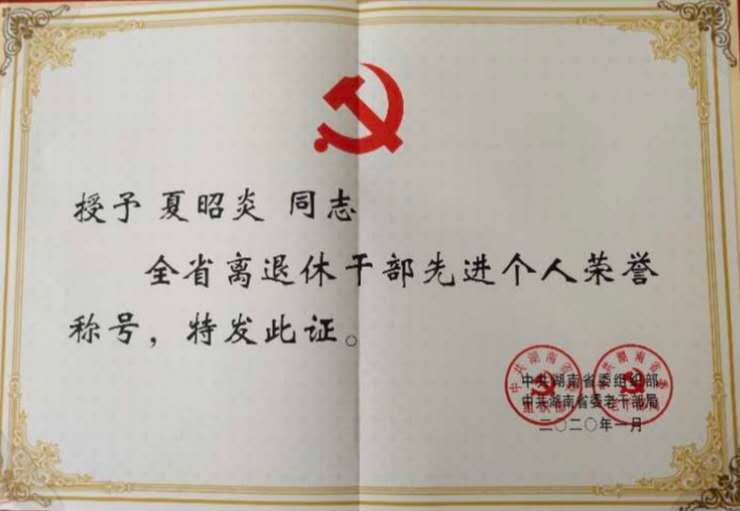 授予 夏昭炎 同志
全省离退休干部先进个人荣誉
称号，特发此证。
中共湖南省委组织部
中共湖南省委老干部局
二〇二〇年一月